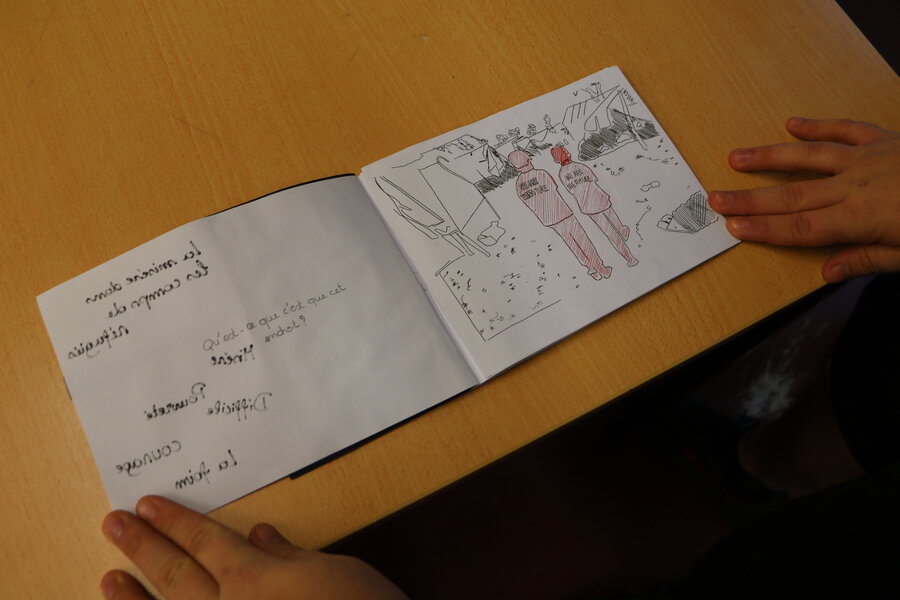 La misère dans
les camps de
réfugiés
Qu'est-ce que c'est que cet
endroit?
Misère
Pauvreté
Difficile
courage
La faim
FUTURE
WE ARE